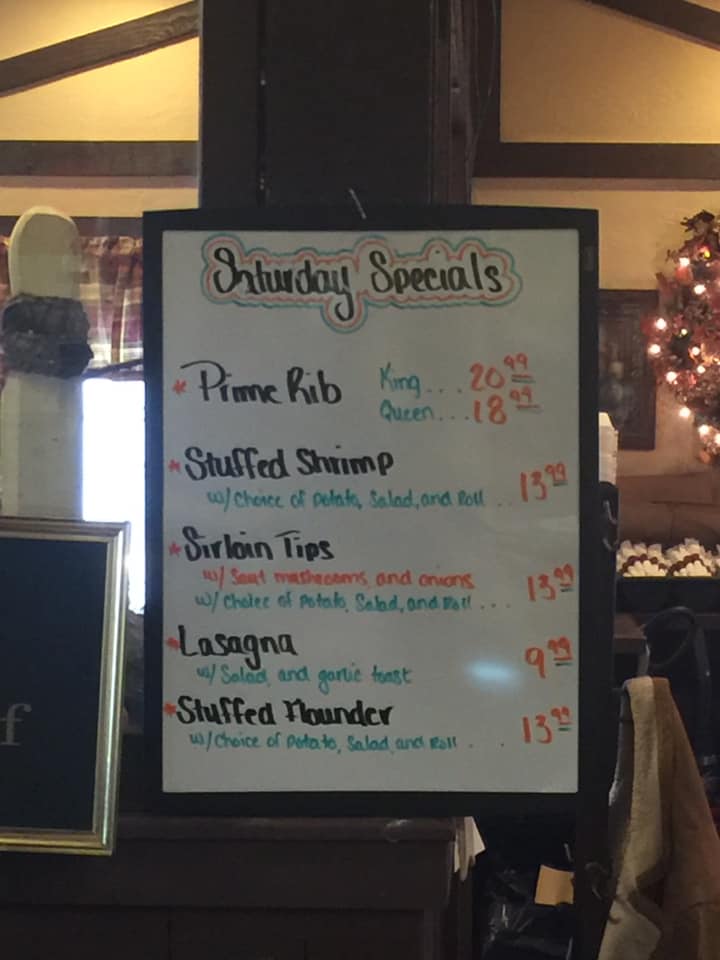 Saturday Specials
* Prime Rib King... 20 99
Queen... 18 99
* Stuffed Shrimp
w/ Choice of Potato, Salad, and Roll .. 13 99
* Sirloin Tips
w/ Saut mushrooms, and onions
w/ Choice of Potato, Salad, and Roll ... 13 99
* Lasagna
w/ Salad and garlic toast 9 99
* Stuffed Flounder 13 99
w/ Choice of Potato, Salad, and Roll . .
f